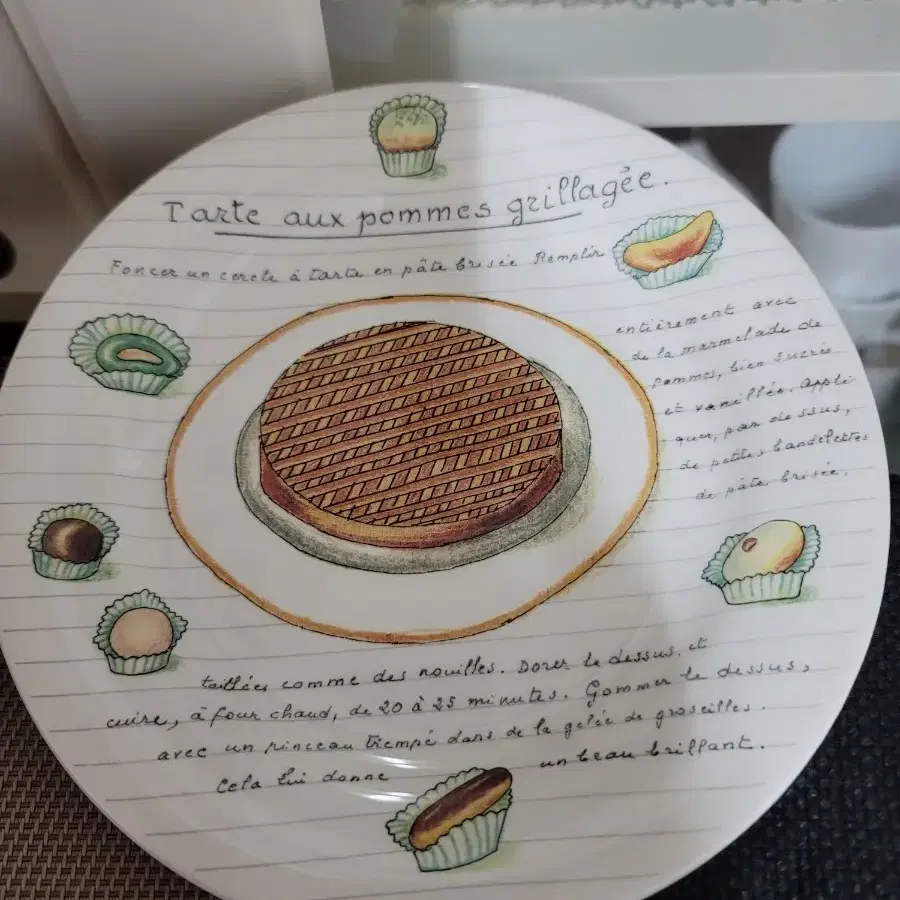 Tarte aux pommes grillagée.
Foncer un cercle à tarte en pâte brisée Remplir
entièrement avec
de la marmelade de
pommes, bien sucrée
et vanillée. Appli
quer, par dessus,
de petites bandelettes
de pâte brisée,
taillées comme des nouilles. Dorer le dessus, et
cuire, à four chaud, de 20 à 25 minutes. Gommer le dessus,
avec un pinceau trempé dans de la gelée de groseilles.
Cela lui donne un beau brillant.